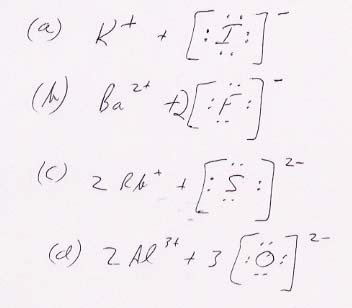 (a) K⁺ + [:Ï:]⁻
(b) Ba²⁺ + 2[:F:]⁻
(c) 2 Rb⁺ + [:S:]²⁻
(d) 2 Al³⁺ + 3 [:O:]²⁻